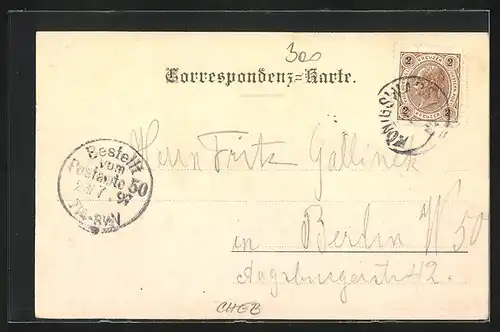 300
Correspondenz=Karte.
2 KREUZER 2
KÖNIGS
Bestellt
vom
Postamte 50
97
7¼-8½V
Herrn Fritz Gallinek
in Berlin W 50
Augsburgerstr 42.
CHEB